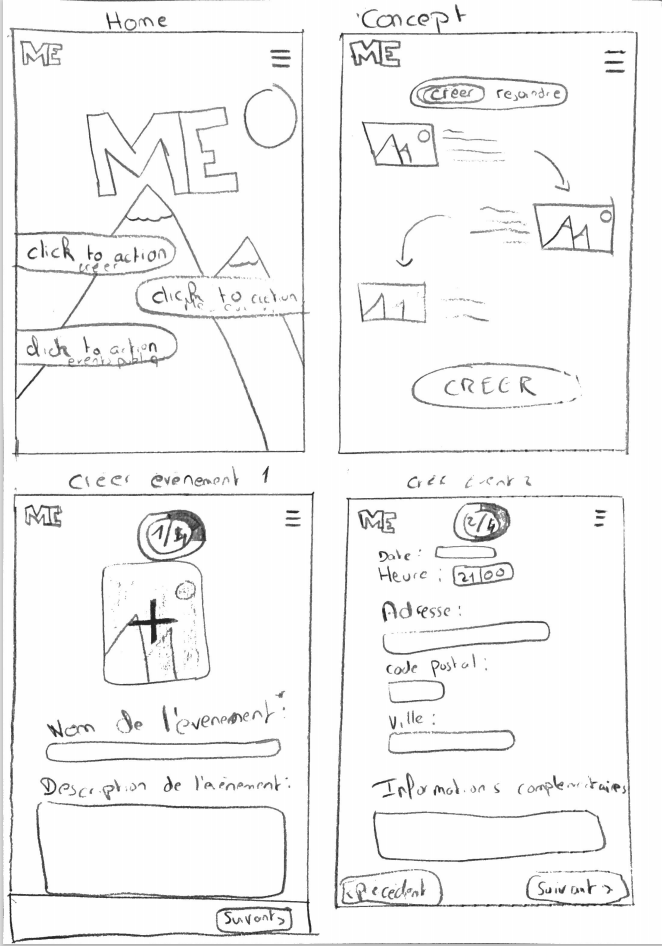 Home
ME
ME
click to action
créer
click to action
click to action
events publiq
Concept
ME
créer rejoindre
CREER
Créer evènement 1
ME
1/4
Nom de l'évenement*:
Description de l'évènement:
Suivant >
Créé event 2
ME
2/4
Date :
Heure : 21 00
Adresse :
code postal :
Ville :
Informations complémentaires
< Précédent
Suivant >